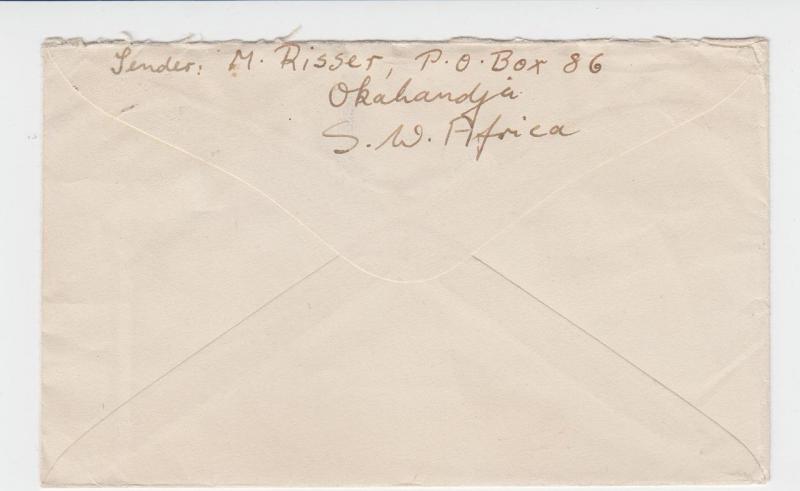 Sender: M. Risser, P.O. Box 86
Okahandja
S. W. Africa